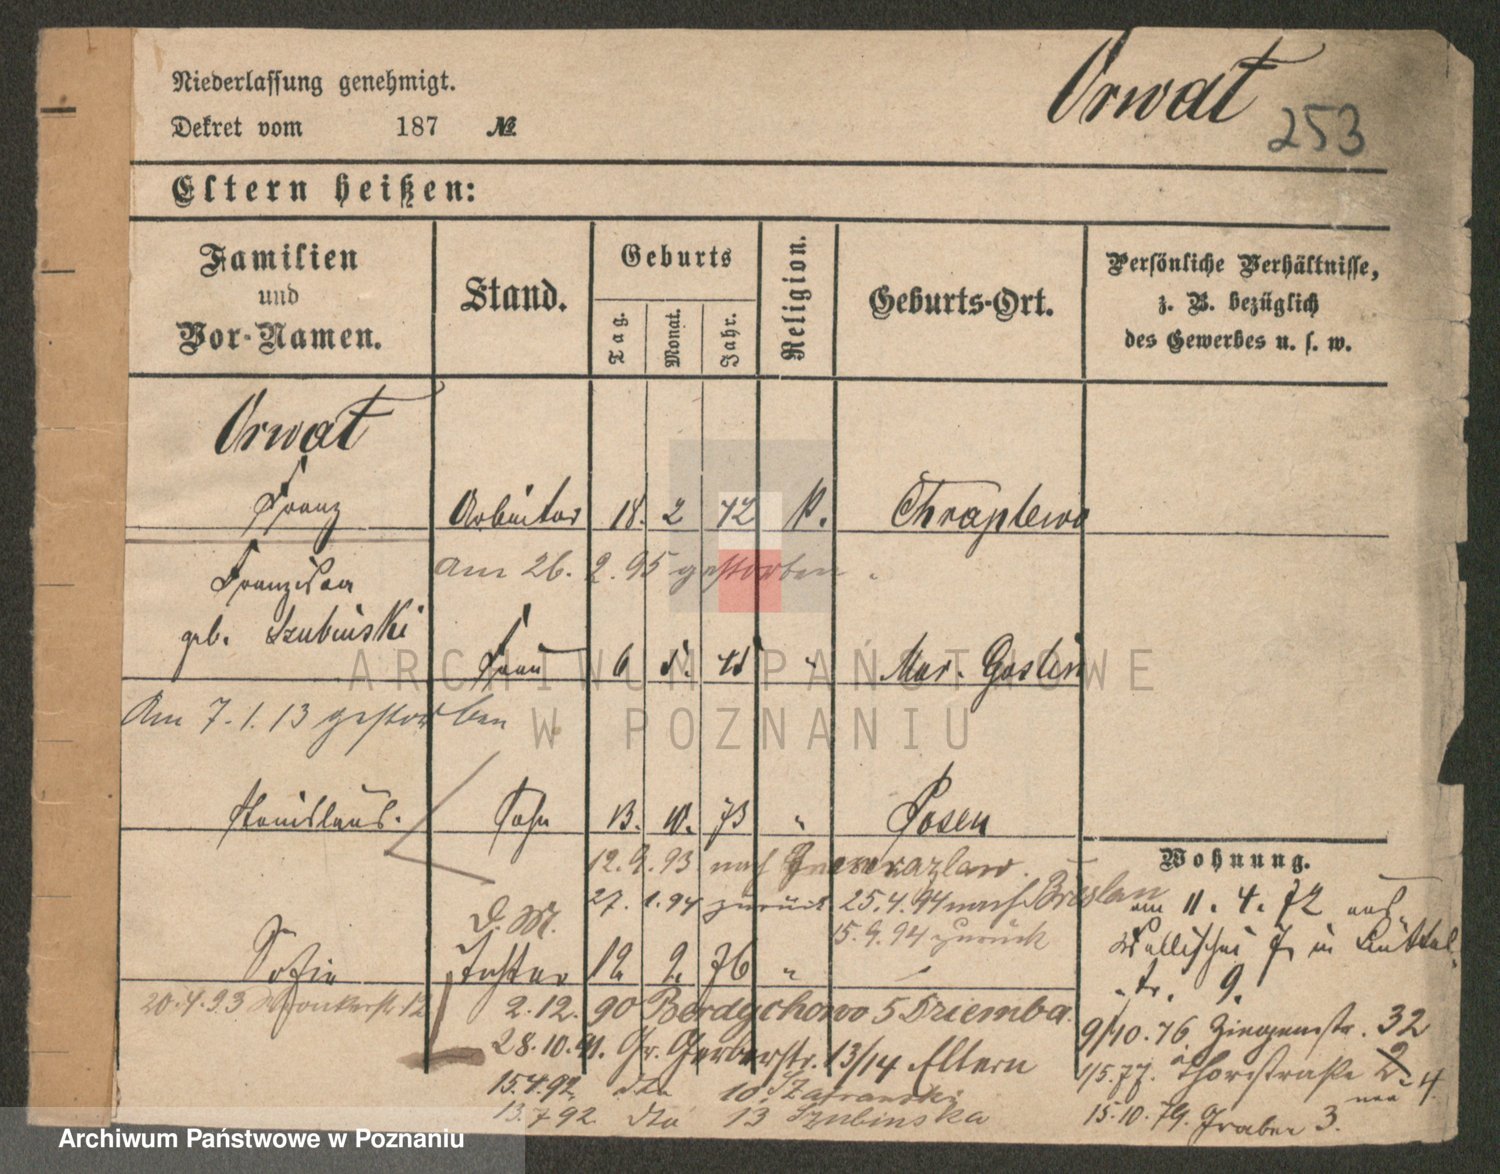 Orwat
253
Niederlassung genehmigt.
Dekret vom 187 №
Eltern heißen:
Familien und Vor-Namen.
Stand.
Geburts
Tag. Monat. Jahr.
Religion.
Geburts-Ort.
Persönliche Verhältnisse,
z. B. bezüglich
des Gewerbes u. s. w.
Orwat
Franz Arbeiter 18. 2 K. Chraplewo
am 26. 2. 95 gestorben.
Franziska
geb. Szubinski Frau 6 " Mur. Goslin
Am 7. 1. 13 gestorben
Stanislaus. Sohn 13. 10. 73 " Posen
12. 9. 93 nach Inowrazlaw.
27. 1. 94 zurück 25. 4. 94 nach Breslau
15. 9. 94 zurück
D. M.
Sofie Tochter 12 2. 76 "
20. 4. 93 Wronkerstr. 12
2. 12. 90 Berdychowo 5 Dziemba.
28. 10. 91. Gr. Gerberstr. 13/14 Eltern
15. 4. 92 dto 10. Szafranski
13. 7 92. dto 13 Szubinska
Wohnung.
am 11. 4. 72 aus
in Büttel-
str. 9.
9/10. 76. Ziegenstr. 32
1/5. 77. Thorstraße 2
neu 4.
15. 10. 79. Graben 3.
ARCHIWUM PAŃSTWOWE
W POZNANIU
Archiwum Państwowe w Poznaniu